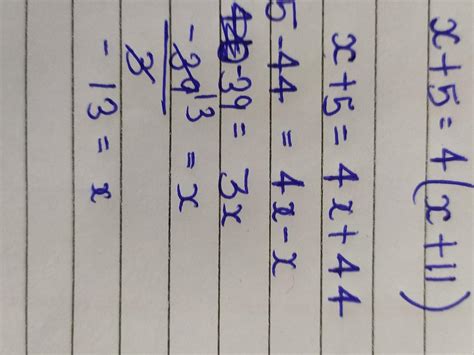 x+5=4(x+11)
x+5=4x+44
5-44 = 4x-x
-39 = 3x
-39 13 = x
3
-13 = x